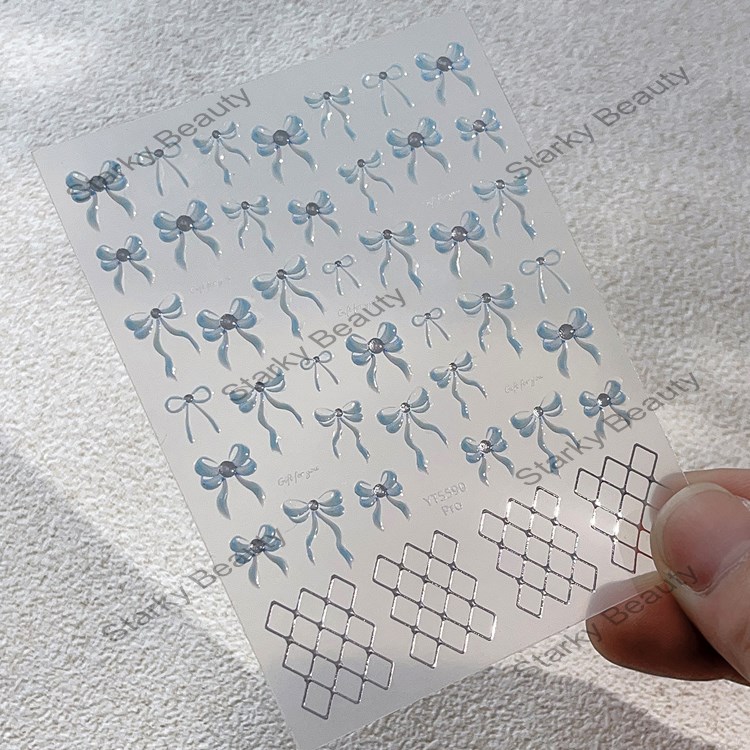 Starky Beauty
Starky Beauty
Starky Beauty
Starky Beauty
Starky Beauty
Starky Beauty
Starky Beauty
Starky Beauty
Gift for you
Gift for you
Gift for you
Gift for you
Gift for you
YT5590
Pro